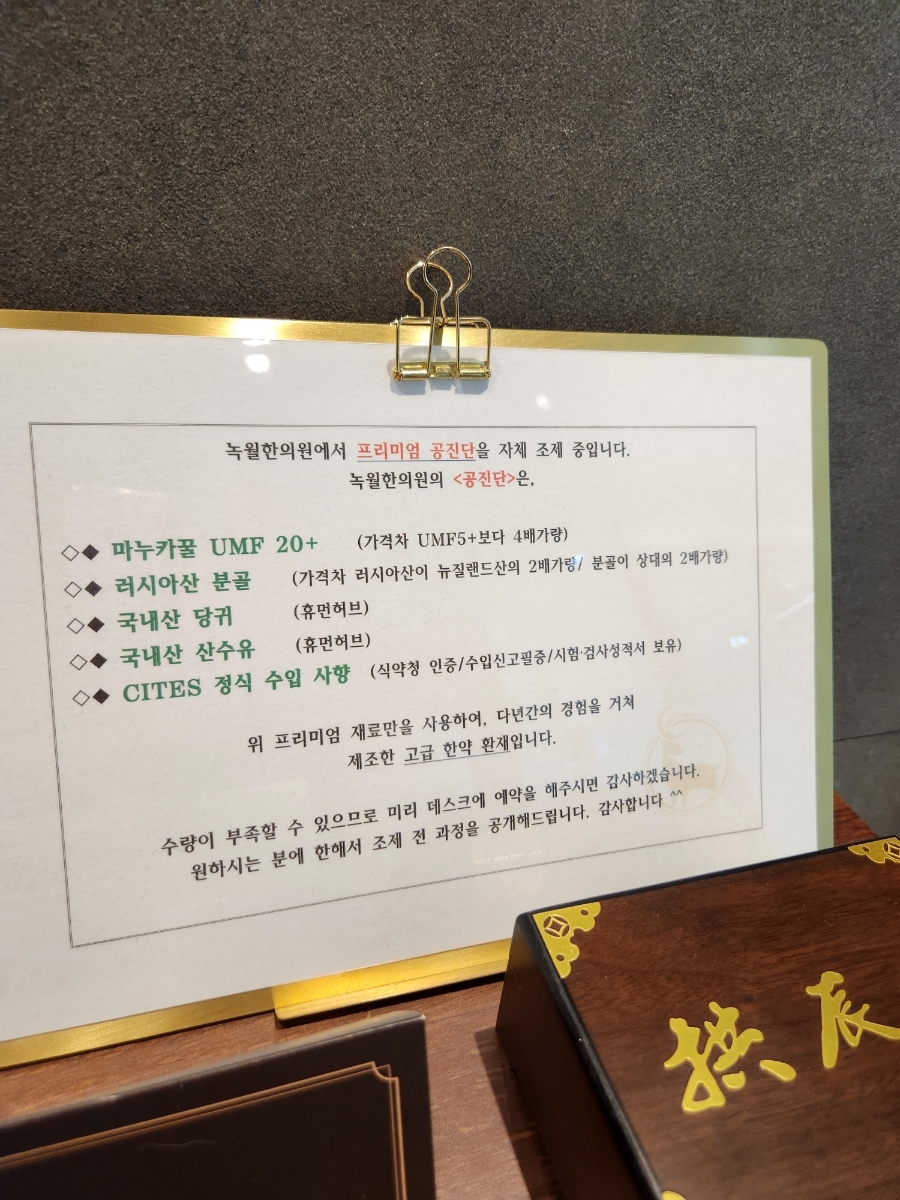 녹월한의원에서 프리미엄 공진단을 자체 조제 중입니다.
녹월한의원의 <공진단>은,
◇◆ 마누카꿀 UMF 20+ (가격차 UMF5+보다 4배가량)
◇◆ 러시아산 분골 (가격차 러시아산이 뉴질랜드산의 2배가량/ 분골이 상대의 2배가량)
◇◆ 국내산 당귀 (휴먼허브)
◇◆ 국내산 산수유 (휴먼허브)
◇◆ CITES 정식 수입 사향 (식약청 인증/수입신고필증/시험·검사성적서 보유)
위 프리미엄 재료만을 사용하여, 다년간의 경험을 거쳐
제조한 고급 한약 환재입니다.
수량이 부족할 수 있으므로 미리 데스크에 예약을 해주시면 감사하겠습니다.
원하시는 분에 한해서 조제 전 과정을 공개해드립니다. 감사합니다 ^^
拱辰